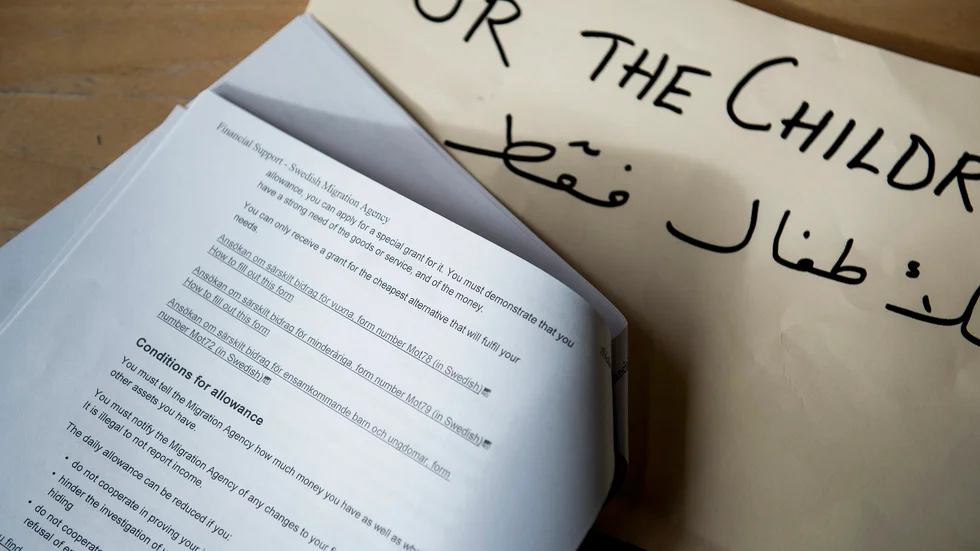 OR THE CHILDR
لأطفال
فقط
Financial Support - Swedish Migration Agency
allowance, you can apply for a special grant for it. You must demonstrate that you
have a strong need of the goods or service, and of the money.
You can only receive a grant for the cheapest alternative that will fulfil your
needs.
Ansökan om särskilt bidrag för vuxna, form number Mot78 (in Swedish)
How to fill out this form
Ansökan om särskilt bidrag för minderåriga, form number Mot79 (in Swedish)
How to fill out this form
Ansökan om särskilt bidrag för ensamkommande barn och ungdomar, form
number Mot72 (in Swedish)
Conditions for allowance
You must tell the Migration Agency how much money you have as well as wh
other assets you have.
You must notify the Migration Agency of any changes to your f
It is illegal to not report income.
The daily allowance can be reduced if you:
• do not cooperate in proving your i
• hinder the investigation of
hiding
• do not cooperat
refusal of e
find